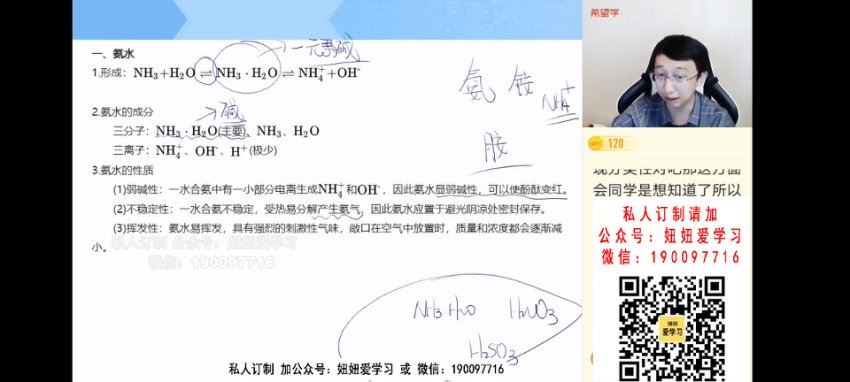 希望学
一、氨水
一元弱碱
1.形成：NH₃+H₂O⇌NH₃·H₂O⇌NH₄⁺+OH⁻
氨 铵 NH₄⁺
胺
2.氨水的成分
碱
三分子：NH₃·H₂O(主要)、NH₃、H₂O
三离子：NH₄⁺、OH⁻、H⁺(极少)
3.氨水的性质
(1)弱碱性：一水合氨中有一小部分电离生成NH₄⁺和OH⁻，因此氨水显弱碱性，可以使酚酞变红。
(2)不稳定性：一水合氨不稳定，受热易分解产生氨气，因此氨水应置于避光阴凉处密封保存。
(3)挥发性：氨水易挥发，具有强烈的刺激性气味，敞口在空气中放置时，质量和浓度都会逐渐减
小。
私人订制 公众号：妞妞爱学习
微信：190097716
NH₃ H₂O HNO₃
H₂SO₃
私人订制 加公众号：妞妞爱学习 或 微信：190097716
120
会同学是想知道了所以
私人订制请加
公众号：妞妞爱学习
微信：190097716
爱学习